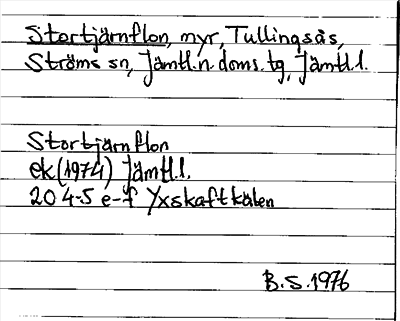 Stortjärnflon, myr, Tullingsås,
Ströms sn, Jämtl.n.doms.tg, Jämtl.l.
Stortjärnflon
ek(1974) Jämtl.l.
20 4-5 e-f Yxskaftkälen
B.S.1976